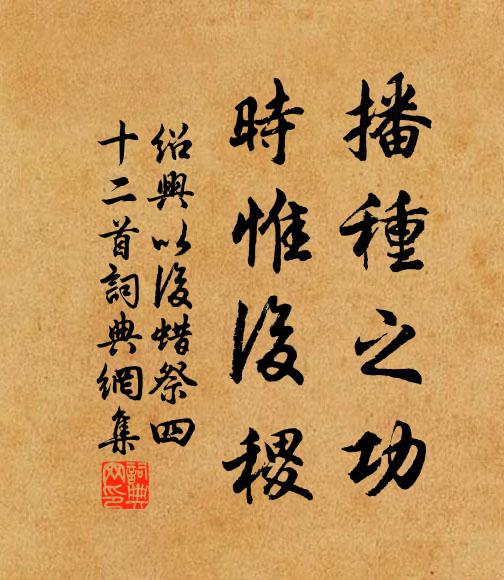 播種之功
時惟後稷
紹興以後蜡祭四
十二首詞典網集
詞典
网印